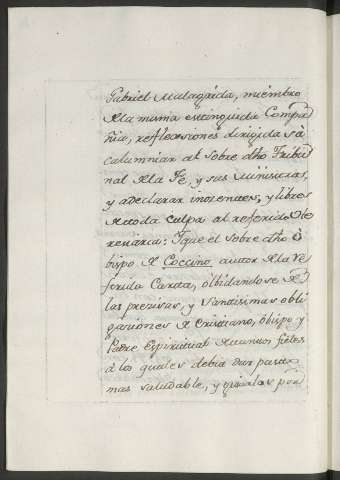 Gabriel Malagrida, miembro
de la misma extinguida Compa
ñia, reflecsiones dirigidas à
calumniar al sobre dho Tribu
nal de la Fe, y sus Ministros,
y adeclarar inocentes, y libres
de toda culpa al referido
: Yque el sobre dho O
bispo de Coccino, autor de la re
ferida Carta, olbidandose de
las precisas, y santisimas obli
gaciones de Cristiano, Obispo y
Padre Espiritual de aun sus fieles
à los quales debia dar pasto
mas saludable, y guiarlos por